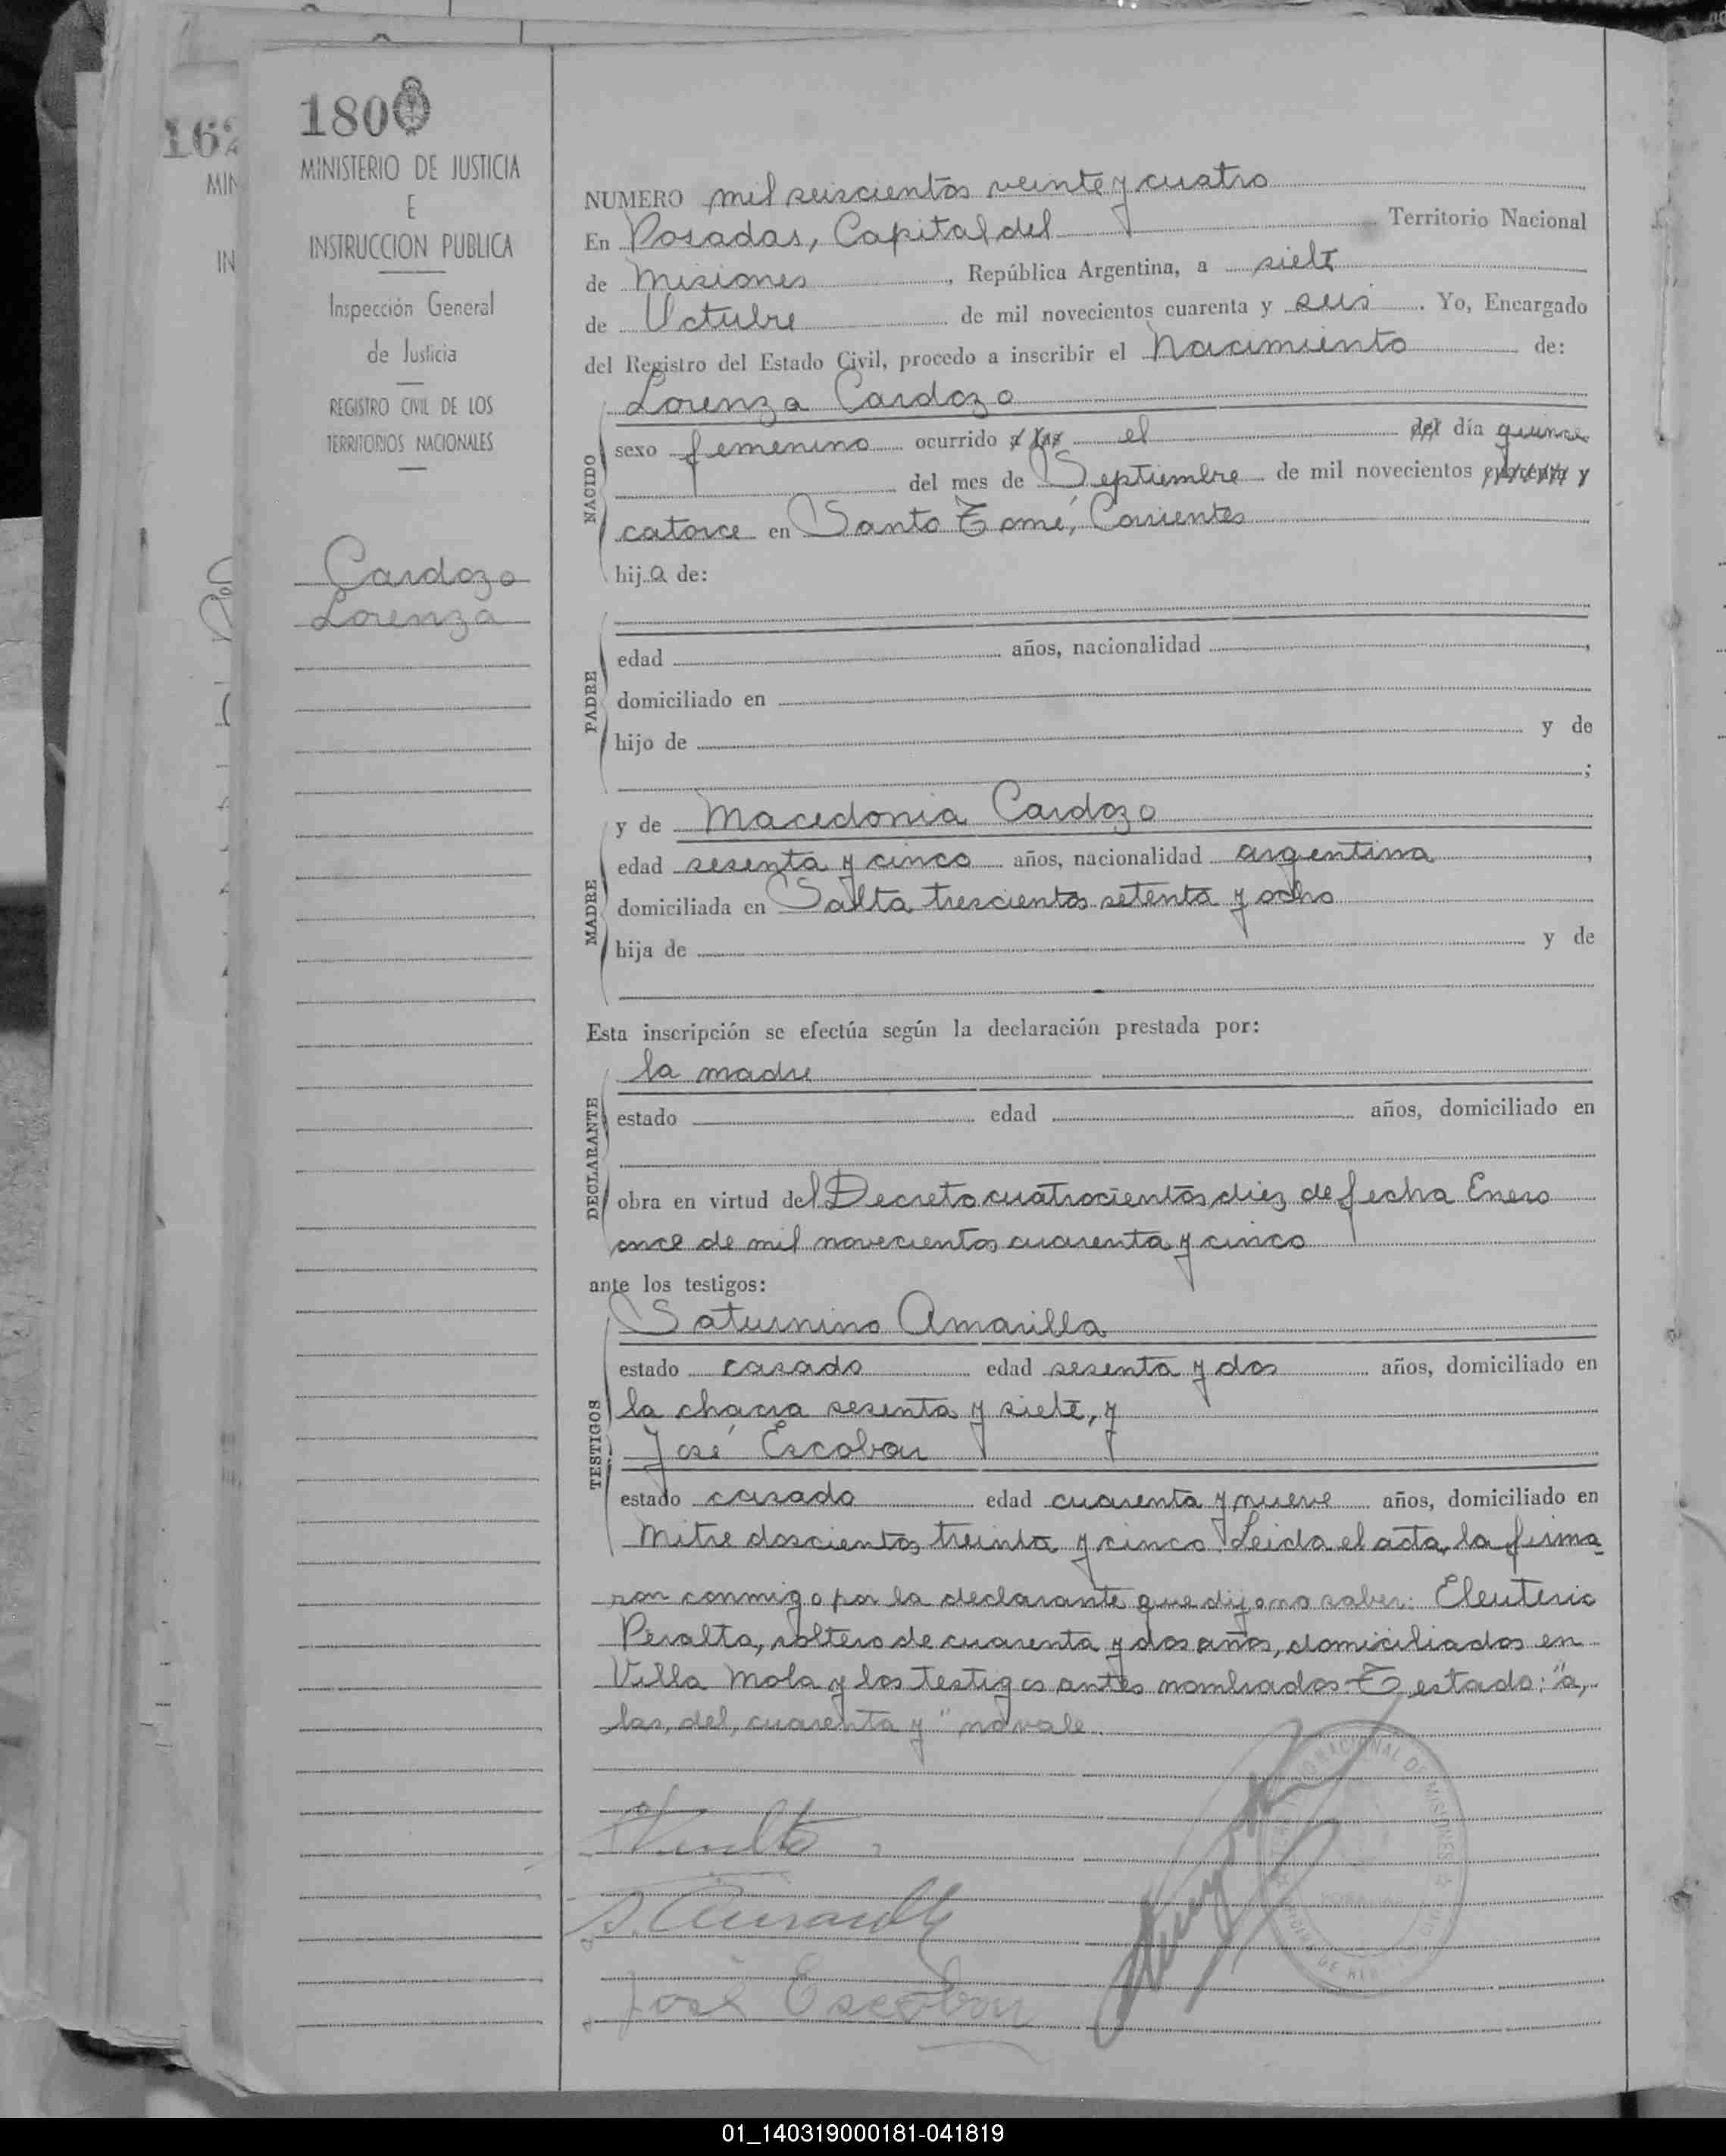 162
MIN
IN
180
MINISTERIO DE JUSTICIA
E
INSTRUCCION PUBLICA
Inspección General
de Justicia
REGISTRO CIVIL DE LOS
TERRITORIOS NACIONALES
Cardozo
Lorenza
NUMERO mil seiscientos veinte y cuatro
En Posadas, Capital del Territorio Nacional
de Misiones, República Argentina, a siete
de Octubre de mil novecientos cuarenta y seis. Yo, Encargado
del Registro del Estado Civil, procedo a inscribir el Nacimiento de:
Lorenza Cardozo
NACIDO
sexo femenino ocurrido a las el del día quince
del mes de Septiembre de mil novecientos cuarenta y
catorce en Santo Tomé, Corrientes
hija de:
PADRE
edad años, nacionalidad ,
domiciliado en
hijo de y de
;
y de Macedonia Cardozo
MADRE
edad sesenta y cinco años, nacionalidad argentina,
domiciliada en Salta trescientos setenta y ocho
hija de y de
Esta inscripción se efectúa según la declaración prestada por:
la madre
DECLARANTE
estado edad años, domiciliado en
obra en virtud del Decreto cuatrocientos diez de fecha Enero
once de mil novecientos cuarenta y cinco
ante los testigos:
Saturnino Amarilla
TESTIGOS
estado casado edad sesenta y dos años, domiciliado en
la chacra sesenta y siete, y
José Escobar
estado casado edad cuarenta y nueve años, domiciliado en
Mitre doscientos treinta y cinco. Leida el acta, la firma
ron conmigo por la declarante que dijo no saber: Eleuterio
Peralta, soltero de cuarenta y dos años, domiciliados en
Villa Mola y los testigos antes nombrados. Testado: "a,
las, del, cuarenta y" no vale.
José Escobar
DE MISIONES
01_140319000181-041819